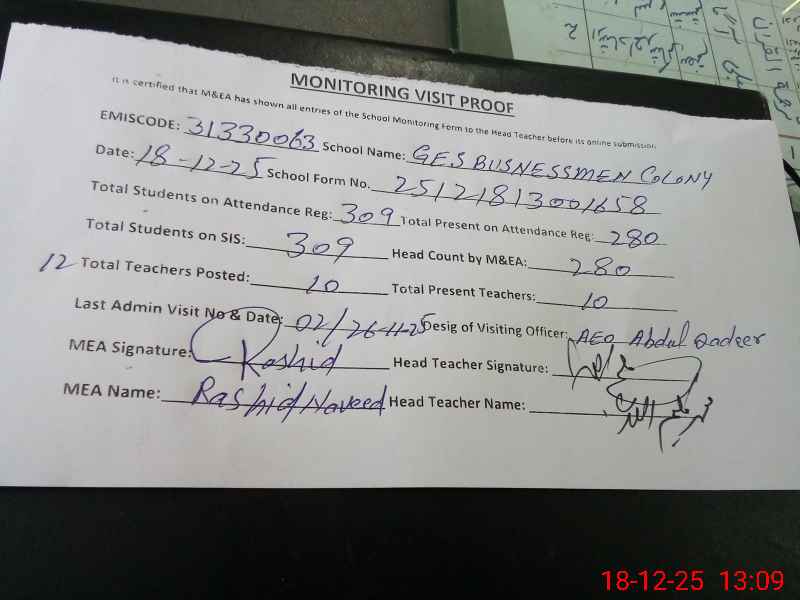 MONITORING VISIT PROOF
It is certified that M&EA has shown all entries of the School Monitoring Form to the Head Teacher before its online submission.
EMISCODE: 31330063 School Name: GES BUSNESSMEN COLONY
Date: 18-12-25 School Form No. 25121813001658
Total Students on Attendance Reg: 309 Total Present on Attendance Reg: 280
Total Students on SIS: 309 Head Count by M&EA: 280
12 Total Teachers Posted: 10 Total Present Teachers: 10
Last Admin Visit No & Date: 02/26-11-25 Desig of Visiting Officer: AEO Abdul Qadeer
MEA Signature: Rashid Head Teacher Signature:
MEA Name: Rashid Naveed Head Teacher Name:
18-12-25 13:09